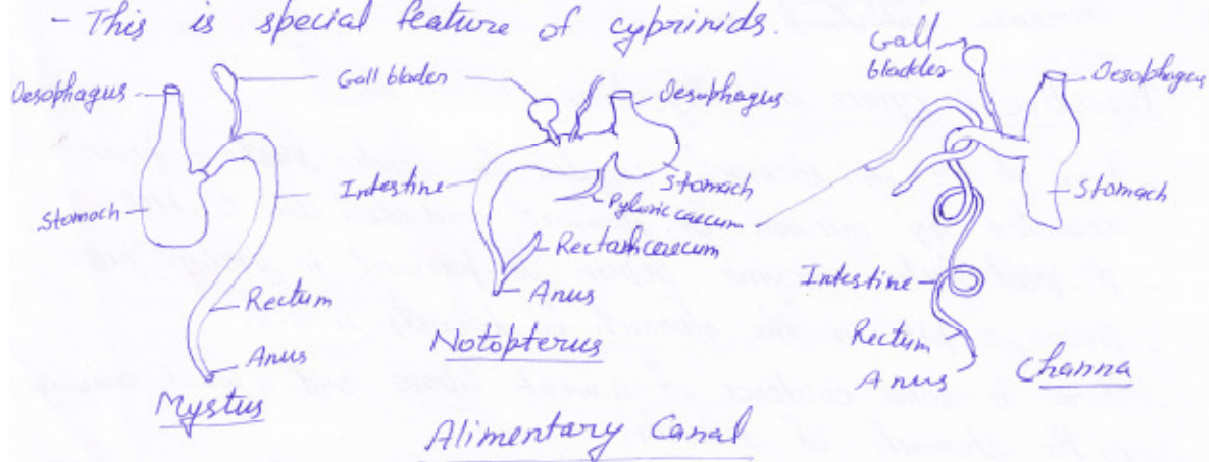 - This is special feature of cyprinids.
Oesophagus
Gall bladder
Stomach
Intestine
Rectum
Anus
Mystus
Oesophagus
Stomach
Pyloric caecum
Rectal caecum
Anus
Notopterus
Gall
bladder
Oesophagus
Stomach
Intestine
Rectum
Anus
Channa
Alimentary Canal